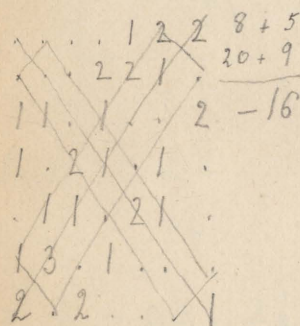 . . . . 1 2 2 8 + 5
. . . 2 2 1 . 20 + 9
1 1 . 1 . . 2 - 16
1 . 2 1 . 1 .
. 1 1 . 2 1 .
1 3 . 1 . . .
2 . 2 . . . 1